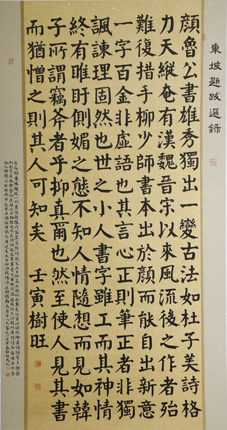 東坡題跋選錄
顏魯公書雄秀獨出一變古法如杜子美詩格
力天縱奄有漢魏晉宋以來風流後之作者殆
難復措手柳少師書本出於顏而能自出新意
一字百金非虛語也其言心正則筆正者非獨
諷諫理固然也世之小人書字雖工而其神情
終有睢盱側媚之態不知人情隨想而見如韓
子所謂竊斧者乎抑真爾也然至使人見其書
而猶憎之則其人可知矣 壬寅樹旺